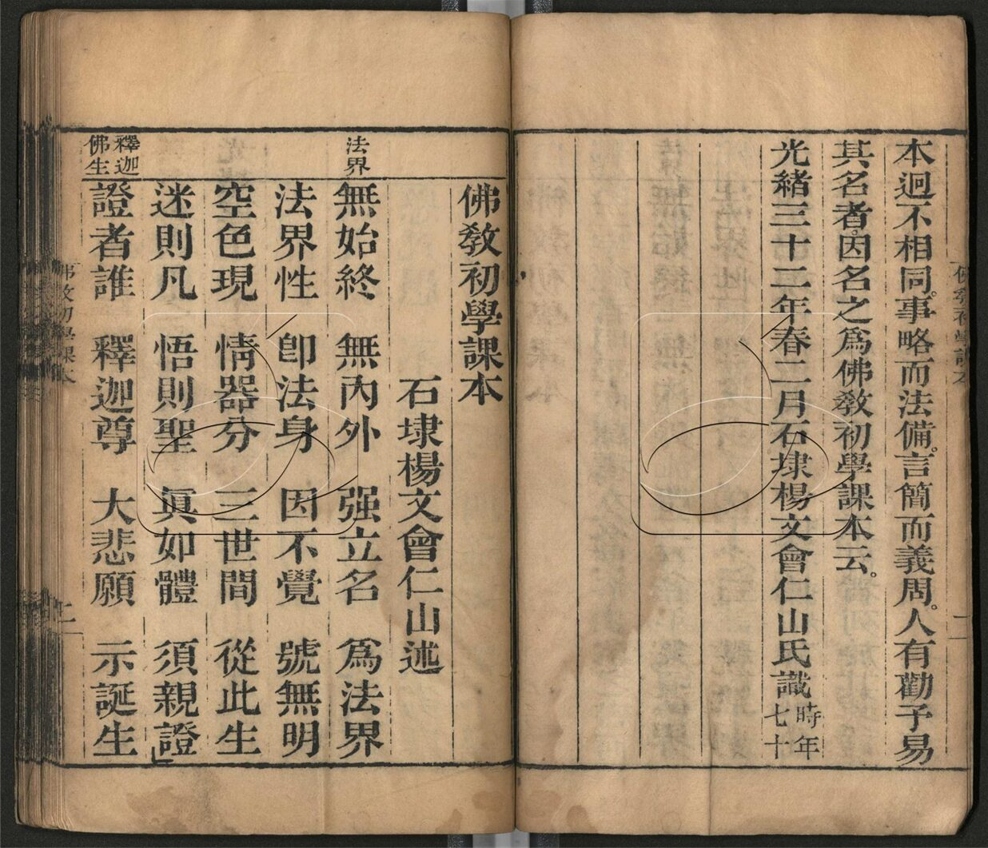 本迥不相同。事略而法備。言簡而義周。人有勸予易
其名者。因名之爲佛敎初學課本云。
光緒三十二年春二月石埭楊文會仁山氏識時年七十
佛敎初學課本
石埭楊文會仁山述
法界
無始終 無內外 强立名 爲法界
法界性 卽法身 因不覺 號無明
空色現 情器分 三世間 從此生
迷則凡 悟則聖 眞如體 須親證
釋迦佛生
證者誰 釋迦尊 大悲願 示誕生
佛敎初學課本 二